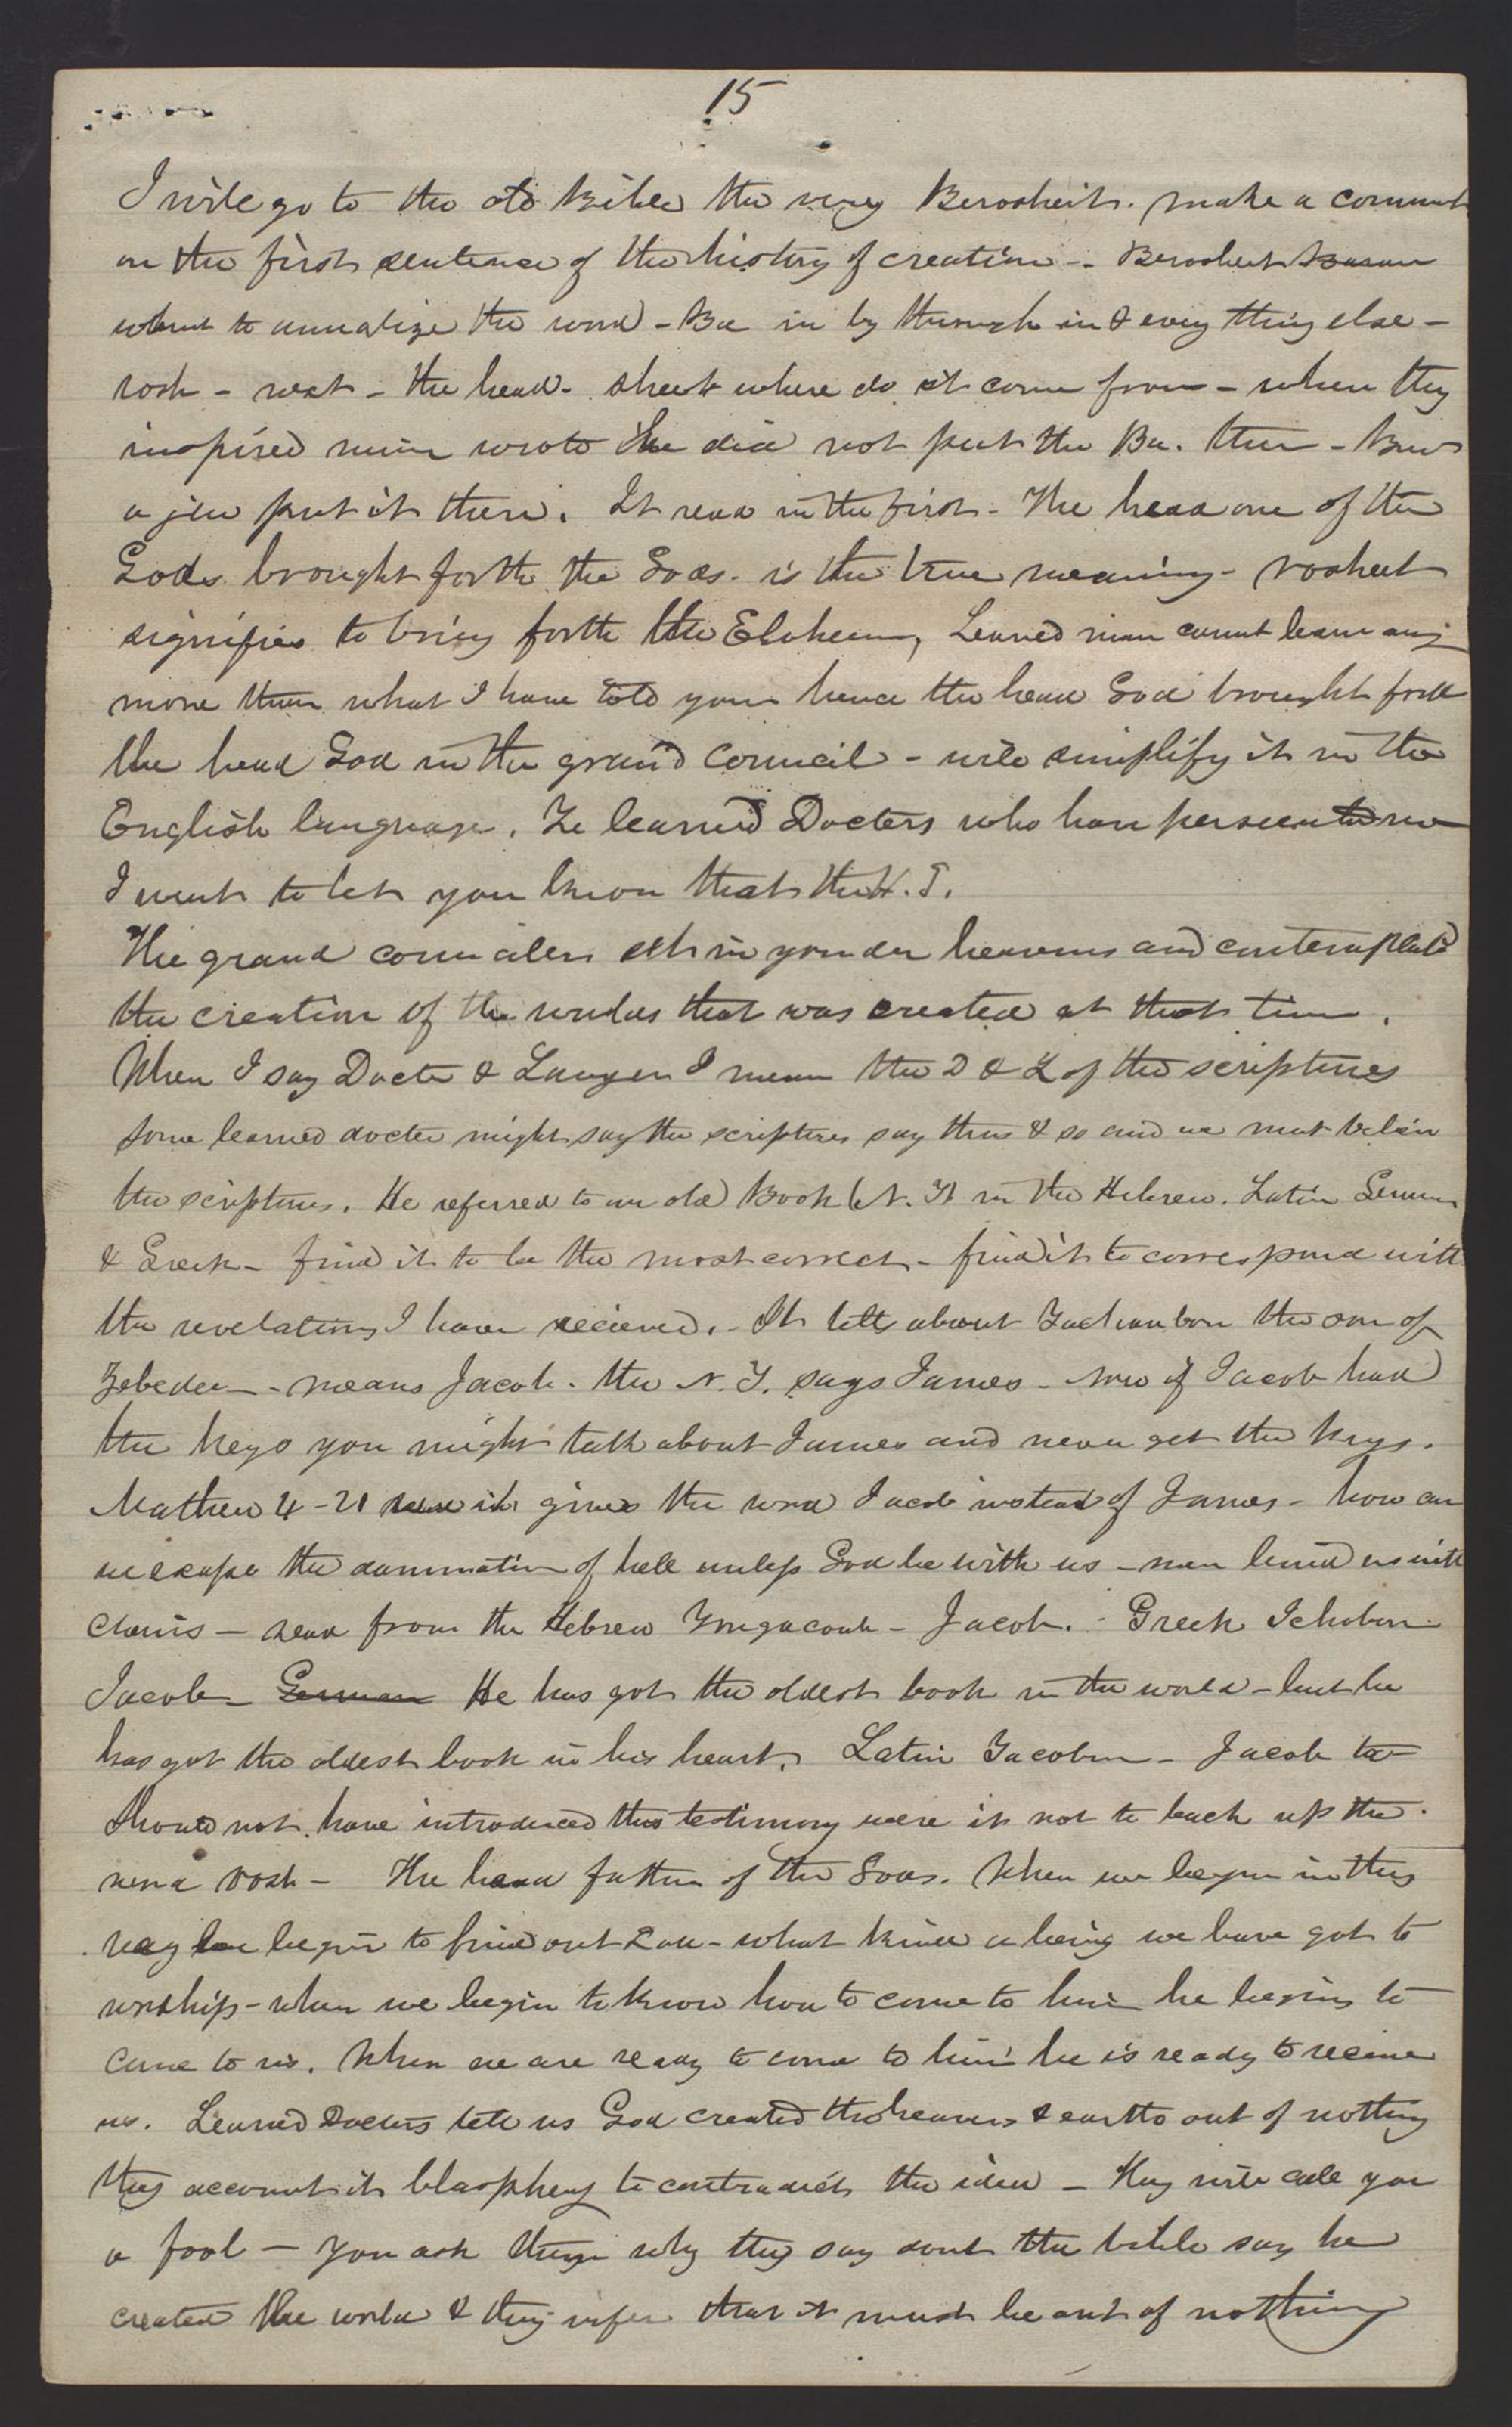 15
I will go to the old Bible the very Berosheit. make a comment
on the first sentence of the history of creation - Berosheit
want to annalize the word - Be in by through in & every thing else -
rosh - - the head. sheit where do it come from - when they
inspired man wrote he did not put the Be. there - But
a jew put it there. It read in the first - The head one of the
Gods brought forth the Gods. is the true meaning - rosheet
signifies to bring forth the Eloheim, Learned men cannot learn any
more than what I have told you hence the head God brought forth
the head God in the grand council - will simplify it in the
English language. Ye learned Doctors who have persecuted me
I want to let you know that the H. G.
The grand councilers sat in yonder heavens and contemplated
the creation of the worlds that was created at that time.
When I say Doctor & Lawyer I mean the D & L of the scriptures
Some learned doctor might say the scriptures say thus & so and we must believe
the scriptures. He referred to an old Book (N. T) in the Hebrew. Latin German
& Greek - find it to be the most correct - find it to correspond with
the revelations I have recieved. - It tells about the son of
Zebedee - means Jacob. the N. T. says James - now if Jacob had
the keys you might talk about James and never get the keys.
Mathew 4-21 it gives the word Jacob instead of James - how can
we escape the damnation of hell unless God be with us - men bind us with
chains - read from the Hebrew - Jacob. - Greek
Jacob - German He has got the oldest book in the world - but he
has got the oldest book in his heart. Latin - Jacob too
Should not have introduced this testimony were it not to back up the
word rosh - The head father of the Gods. When we begin in this
way we begin to find out God - what kind a being we have got to
worship - when we begin to know how to come to him he begins to
come to us. When we are ready to come to him he is ready to receive
us. Learned Doctors tell us God created the heavens & earth out of nothing
they account it blasphemy to contradict the idea - They will call you
a fool - You ask them why they say dont the bible say he
created the world & they infer that it must be out of nothing